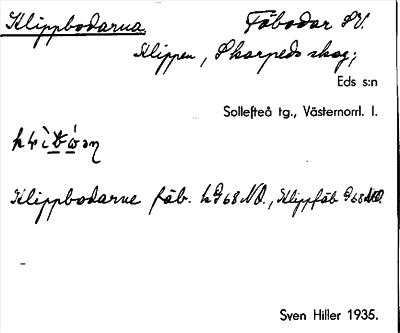 Klippbodarna Fäbodar SV.
Klippen, Skarpeds skog;
Eds s:n
Sollefteå tg., Västernorrl. l.
Klippbodarne fäb. k G68NO., Klippfäb G68NO.
Sven Hiller 1935.